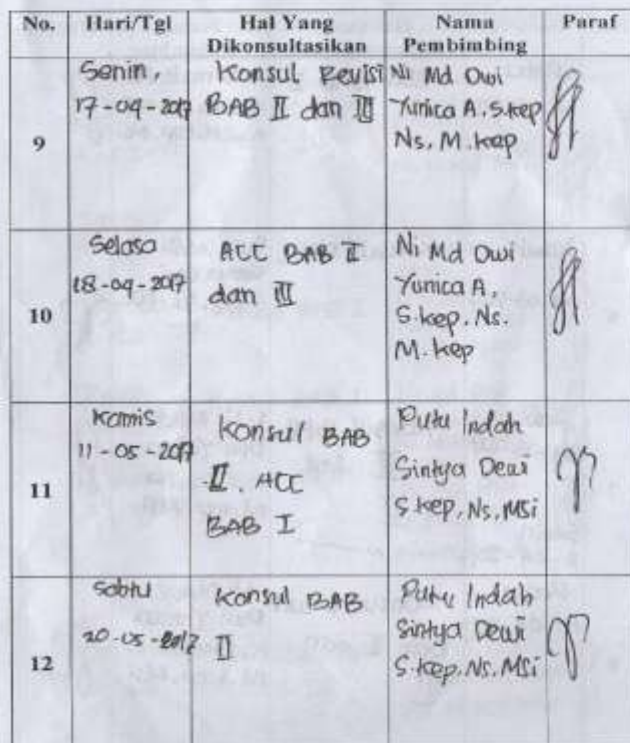 No. Hari/Tgl Hal Yang Dikonsultasikan Nama Pembimbing Paraf
9 Senin, 17-04-2017 Konsul Revisi BAB II dan III Ni Md Dwi Yunica A, S.Kep Ns, M.Kep
10 Selasa 18-04-2017 ACC BAB II dan III Ni Md Dwi Yunica A, S.Kep, Ns. M.Kep
11 Kamis 11-05-2017 Konsul BAB II. ACC BAB I Putu Indah Sintya Dewi S.Kep, Ns, MSi
12 Sabtu 20-05-2017 Konsul BAB II Putu Indah Sintya Dewi S.Kep, Ns, MSi